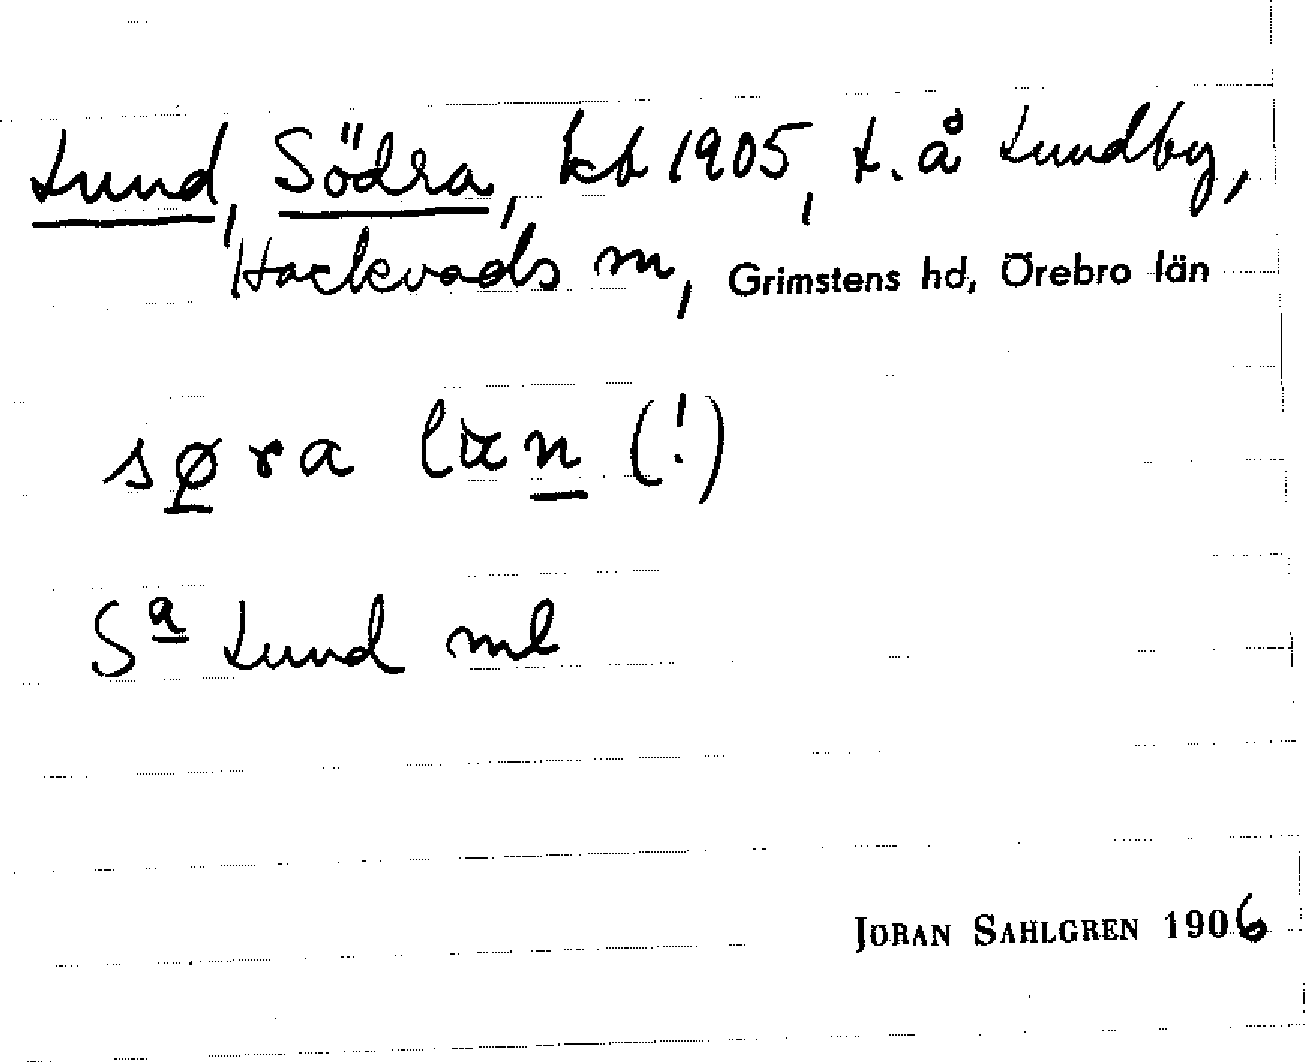 Lund, Södra, kb 1905, t. å Lundby,
Hackvads sn, Grimstens hd, Örebro län
søra læn (!)
Sa Lund ml
JÖRAN SAHLGREN 1906